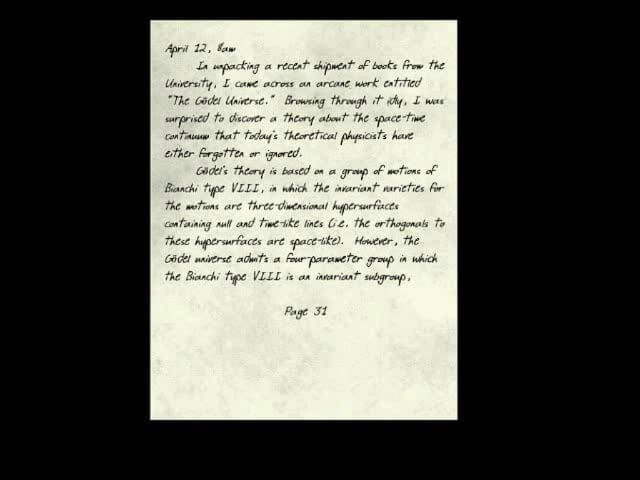 April 12, 8am
In unpacking a recent shipment of books from the
University, I came across an arcane work entitled
"The Gödel Universe." Browsing through it idly, I was
surprised to discover a theory about the space-time
continuum that today's theoretical physicists have
either forgotten or ignored.
Gödel's theory is based on a group of motions of
Bianchi type VIII, in which the invariant varieties for
the motions are three-dimensional hypersurfaces
containing null and time-like lines (i.e. the orthogonals to
these hypersurfaces are space-like). However, the
Gödel universe admits a four-parameter group in which
the Bianchi type VIII is an invariant subgroup,
Page 31